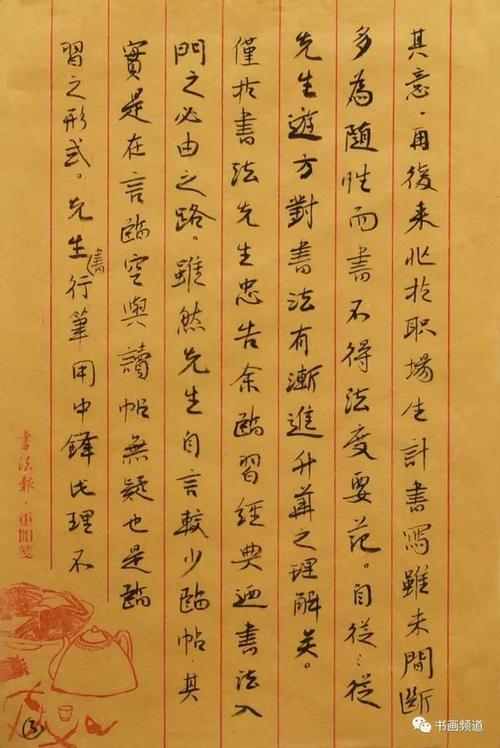 其意。再後来忙於职場生計書寫雖未間斷
多為随性而書不得法度要范。自從：從
先生遊方對書法有漸進升華之理解矣。
僅於書法先生忠告余臨習經典迺書法入
門之必由之路。雖然先生自言較少臨帖，其
實是在言臨空與讀帖無疑也是臨
習之形式。先生書行筆用中鋒此理不
書法報
③
书画频道